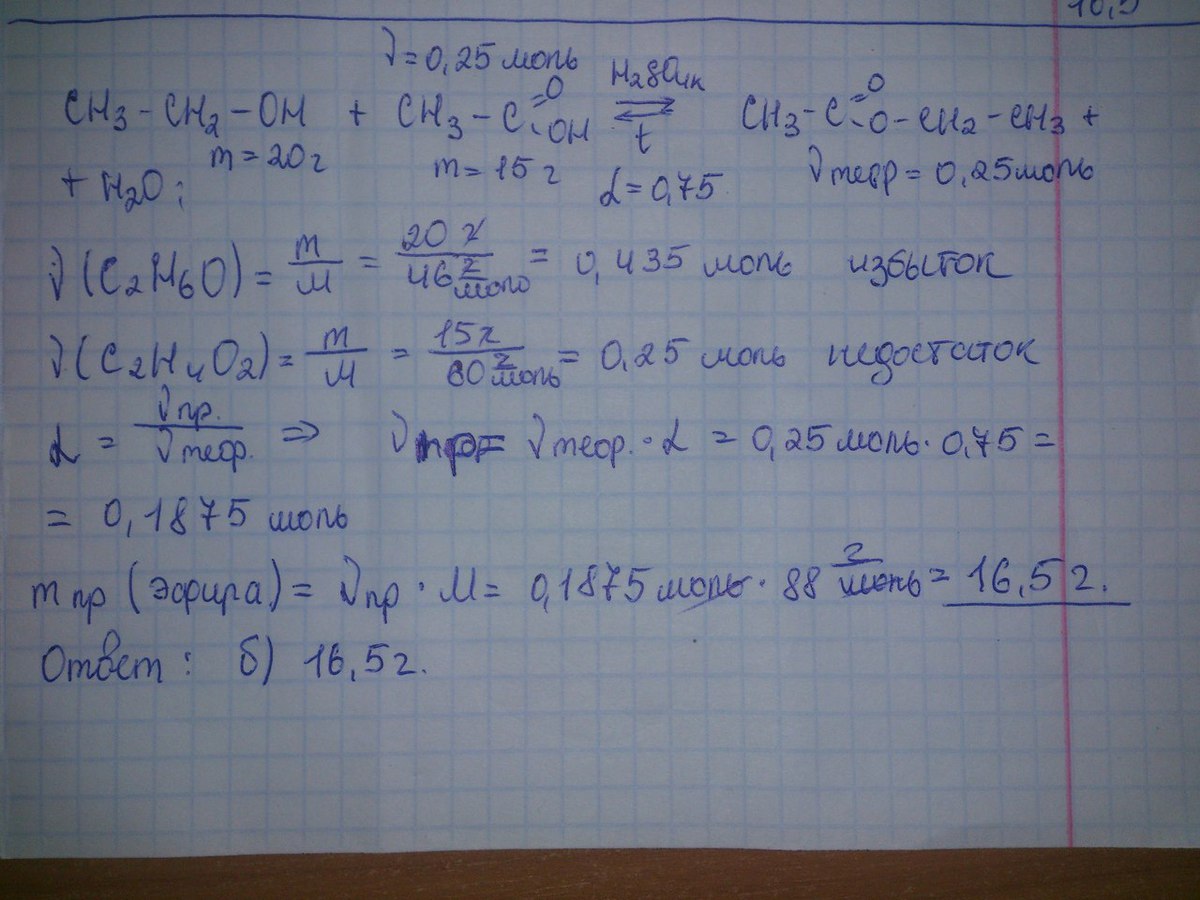 16,5
ν = 0,25 моль
CH3 – CH2 – OH + CH3 – C =O – OH ⇌ H2SO4 к t CH3 – C =O – O – CH2 – CH3 +
m = 20 г m = 15 г α = 0,75 νтеор = 0,25 моль
+ H2O;
ν (C2H6O) = m/M = 20 г / 46 г/моль = 0,435 моль избыток
ν (C2H4O2) = m/M = 15 г / 60 г/моль = 0,25 моль недостаток
α = νпр. / νтеор. ⇒ νпр = νтеор. · α = 0,25 моль · 0,75 =
= 0,1875 моль
mпр (эфира) = νпр · M = 0,1875 моль · 88 г/моль = 16,5 г.
Ответ: б) 16,5 г.